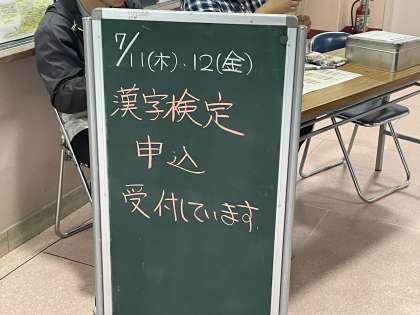 7/11(木)、12(金)
漢字検定
申込
受付しています。